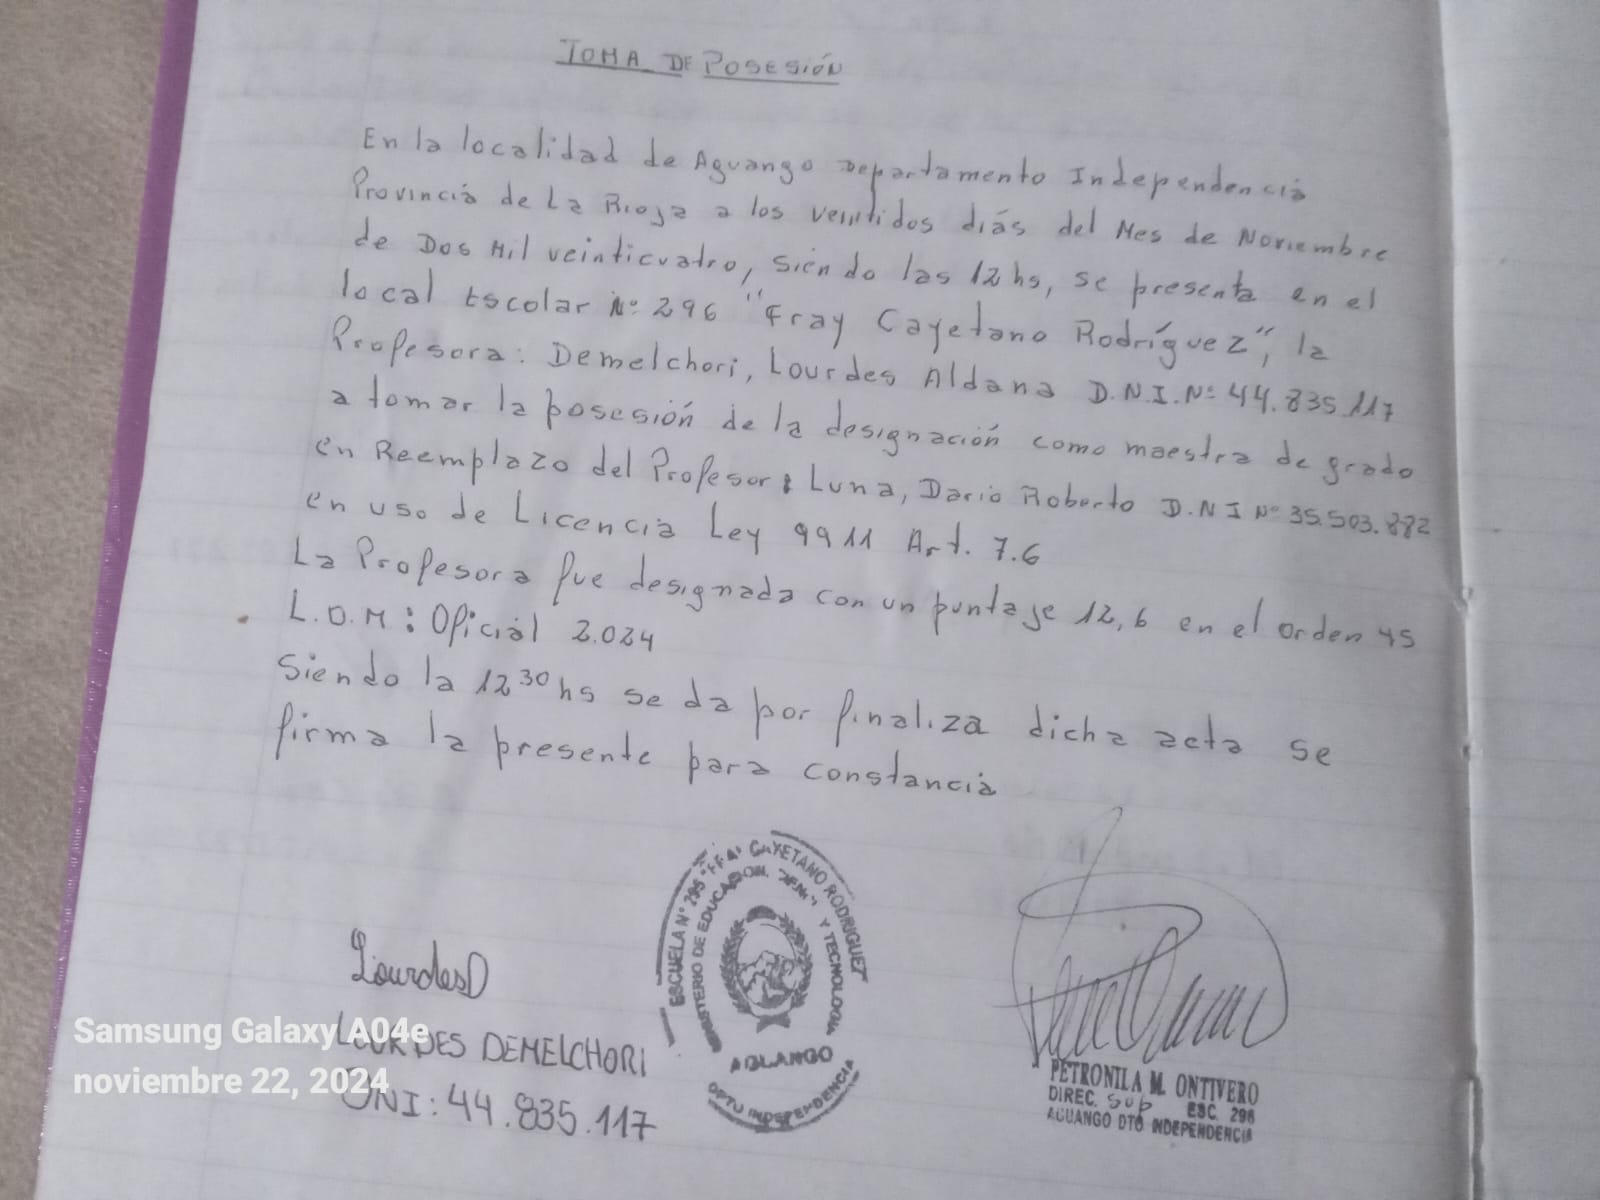 TOMA DE POSESIÓN
En la localidad de Aguango Departamento Independencia
Provincia de La Rioja a los veintidos días del Mes de Noviembre
de Dos Mil veinticuatro, siendo las 12 hs, se presenta en el
local Escolar Nº 296 "Fray Cayetano Rodríguez", la
Profesora: Demelchori, Lourdes Aldana D.N.I. Nº 44.835.117
a tomar la posesión de la designación como maestra de grado
en Reemplazo del Profesor: Luna, Dario Roberto D.N I Nº 35.503.882
en uso de Licencia Ley 9911 Art. 7.6
La Profesora fue designada con un puntaje 12,6 en el orden 45
L.O.M: Oficial 2.024
Siendo la 12³⁰ hs se da por finaliza dicha acta se
firma la presente para constancia
LourdesD
LOURDES DEMELCHORI
DNI: 44.835.117
ESCUELA Nº CAYETANO RODRIGUEZ
MINISTERIO DE EDUCACION, Y TECNOLOGIA
AGUANGO
DPTO INDEPENDENCIA
PETRONILA M. ONTIVERO
DIREC. Sup ESC. 296
AGUANGO DTO INDEPENDENCIA
Samsung Galaxy A04e
noviembre 22, 2024